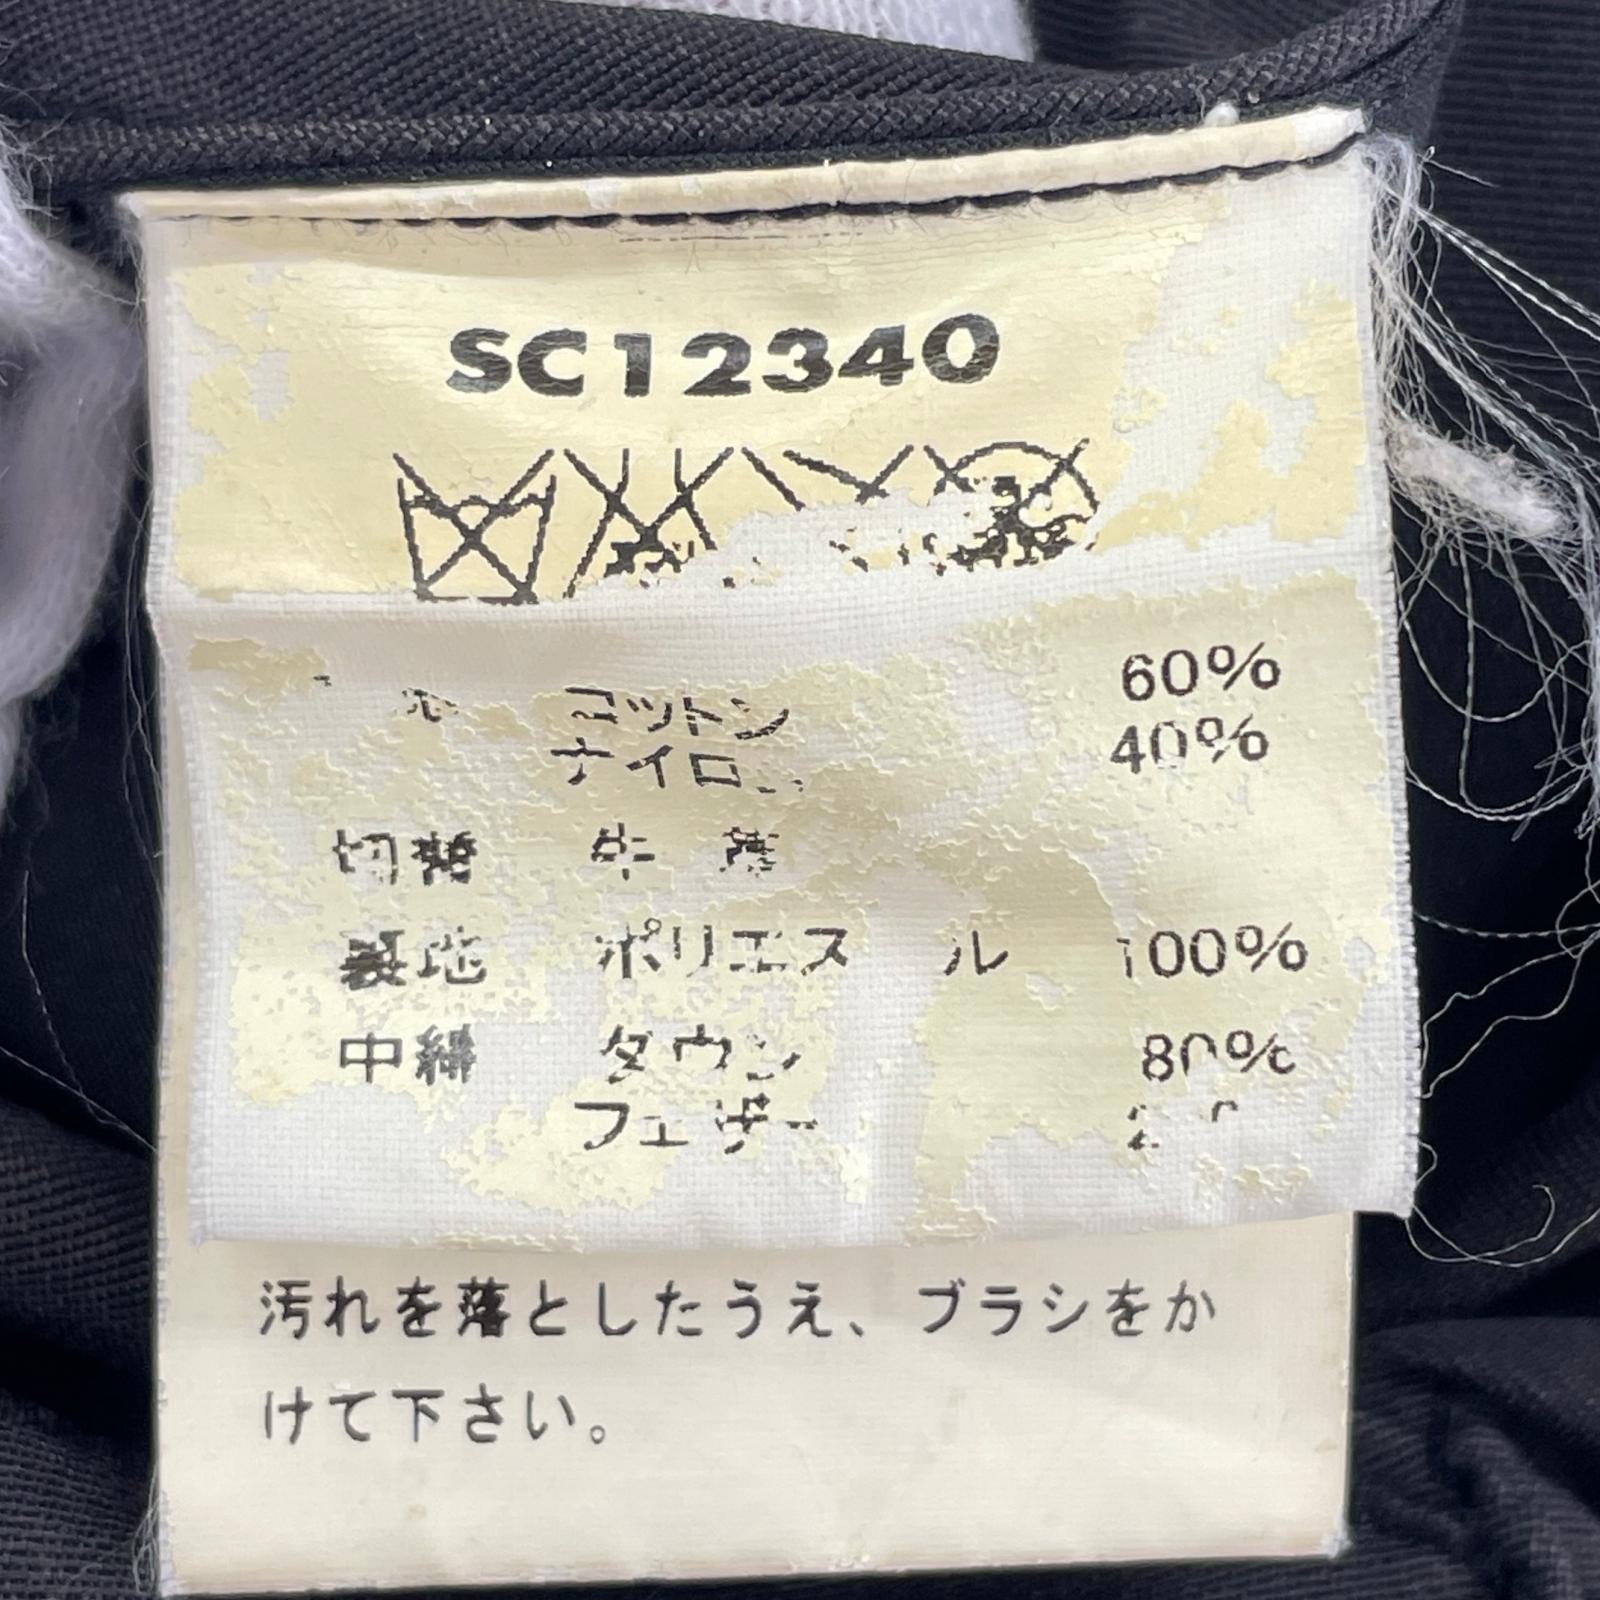 SC12340
コットン 60%
ナイロン 40%
切替 牛革
裏地 ポリエステル 100%
中綿 ダウン 80%
フェザー
汚れを落としたうえ、ブラシをか
けて下さい。